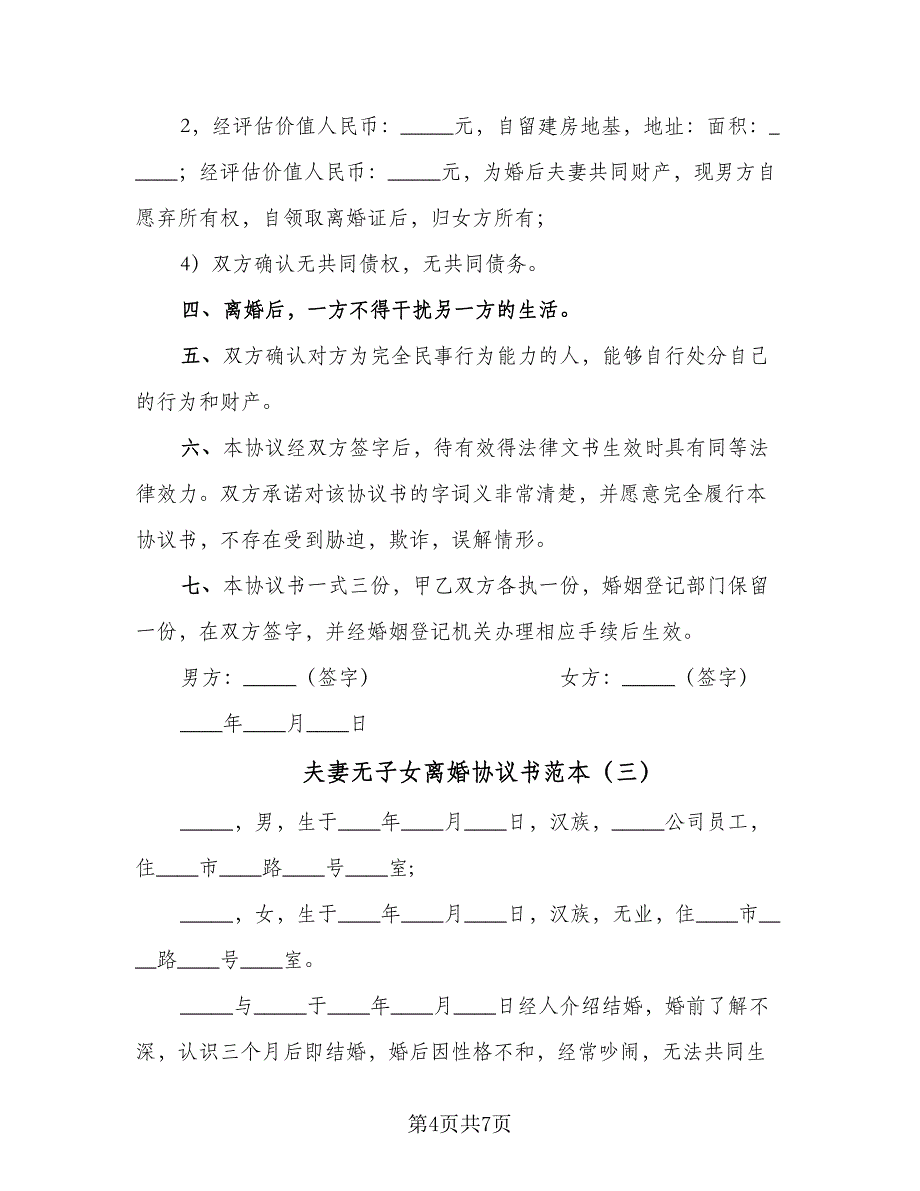 2，经评估价值人民币：_____元，自留建房地基，地址：面积：_
____；经评估价值人民币：_____元，为婚后夫妻共同财产，现男方自
愿弃所有权，自领取离婚证后，归女方所有；
4）双方确认无共同债权，无共同债务。
四、离婚后，一方不得干扰另一方的生活。
五、双方确认对方为完全民事行为能力的人，能够自行处分自己
的行为和财产。
六、本协议经双方签字后，待有效得法律文书生效时具有同等法
律效力。双方承诺对该协议书的字词义非常清楚，并愿意完全履行本
协议书，不存在受到胁迫，欺诈，误解情形。
七、本协议书一式三份，甲乙双方各执一份，婚姻登记部门保留
一份，在双方签字，并经婚姻登记机关办理相应手续后生效。
男方：_____（签字） 女方：_____（签字）
____年____月____日
夫妻无子女离婚协议书范本（三）
_____，男，生于____年____月____日，汉族，_____公司员工，
住____市____路____号____室；
_____，女，生于____年____月____日，汉族，无业，住____市__
__路____号____室。
_____与_____于____年____月____日经人介绍结婚，婚前了解不
深，认识三个月后即结婚，婚后因性格不和，经常吵闹，无法共同生
第4页共7页